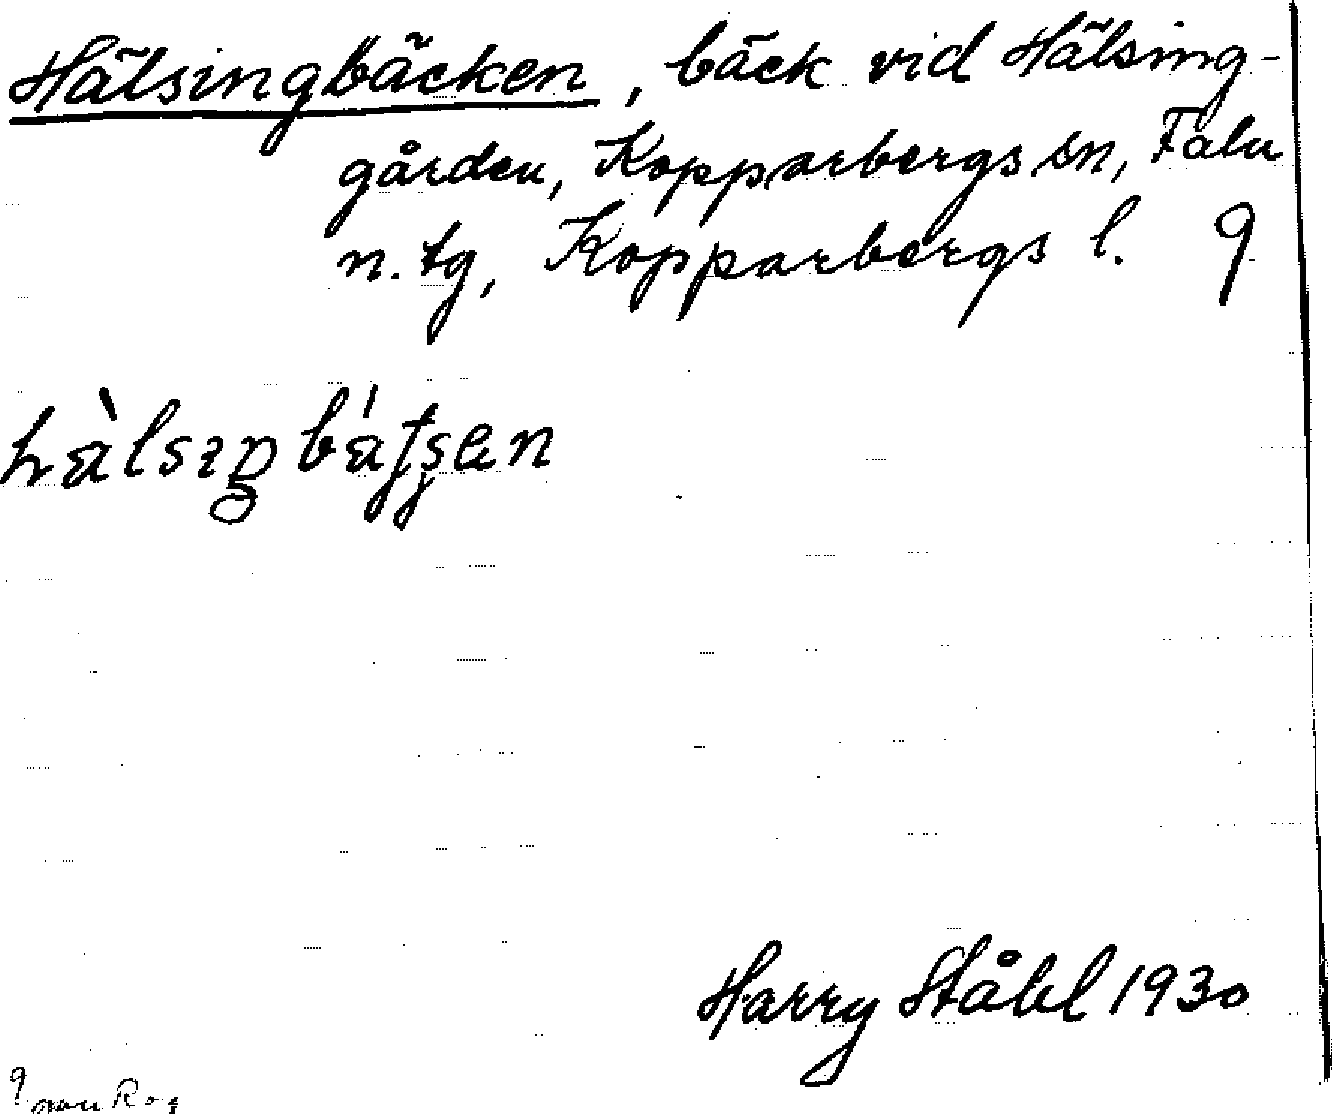 Hälsingbäcken, bäck vid Hälsing-
gården, Kopparbergs sn, Falu
n. tg, Kopparbergs l. 9
Harry Ståhl 1930